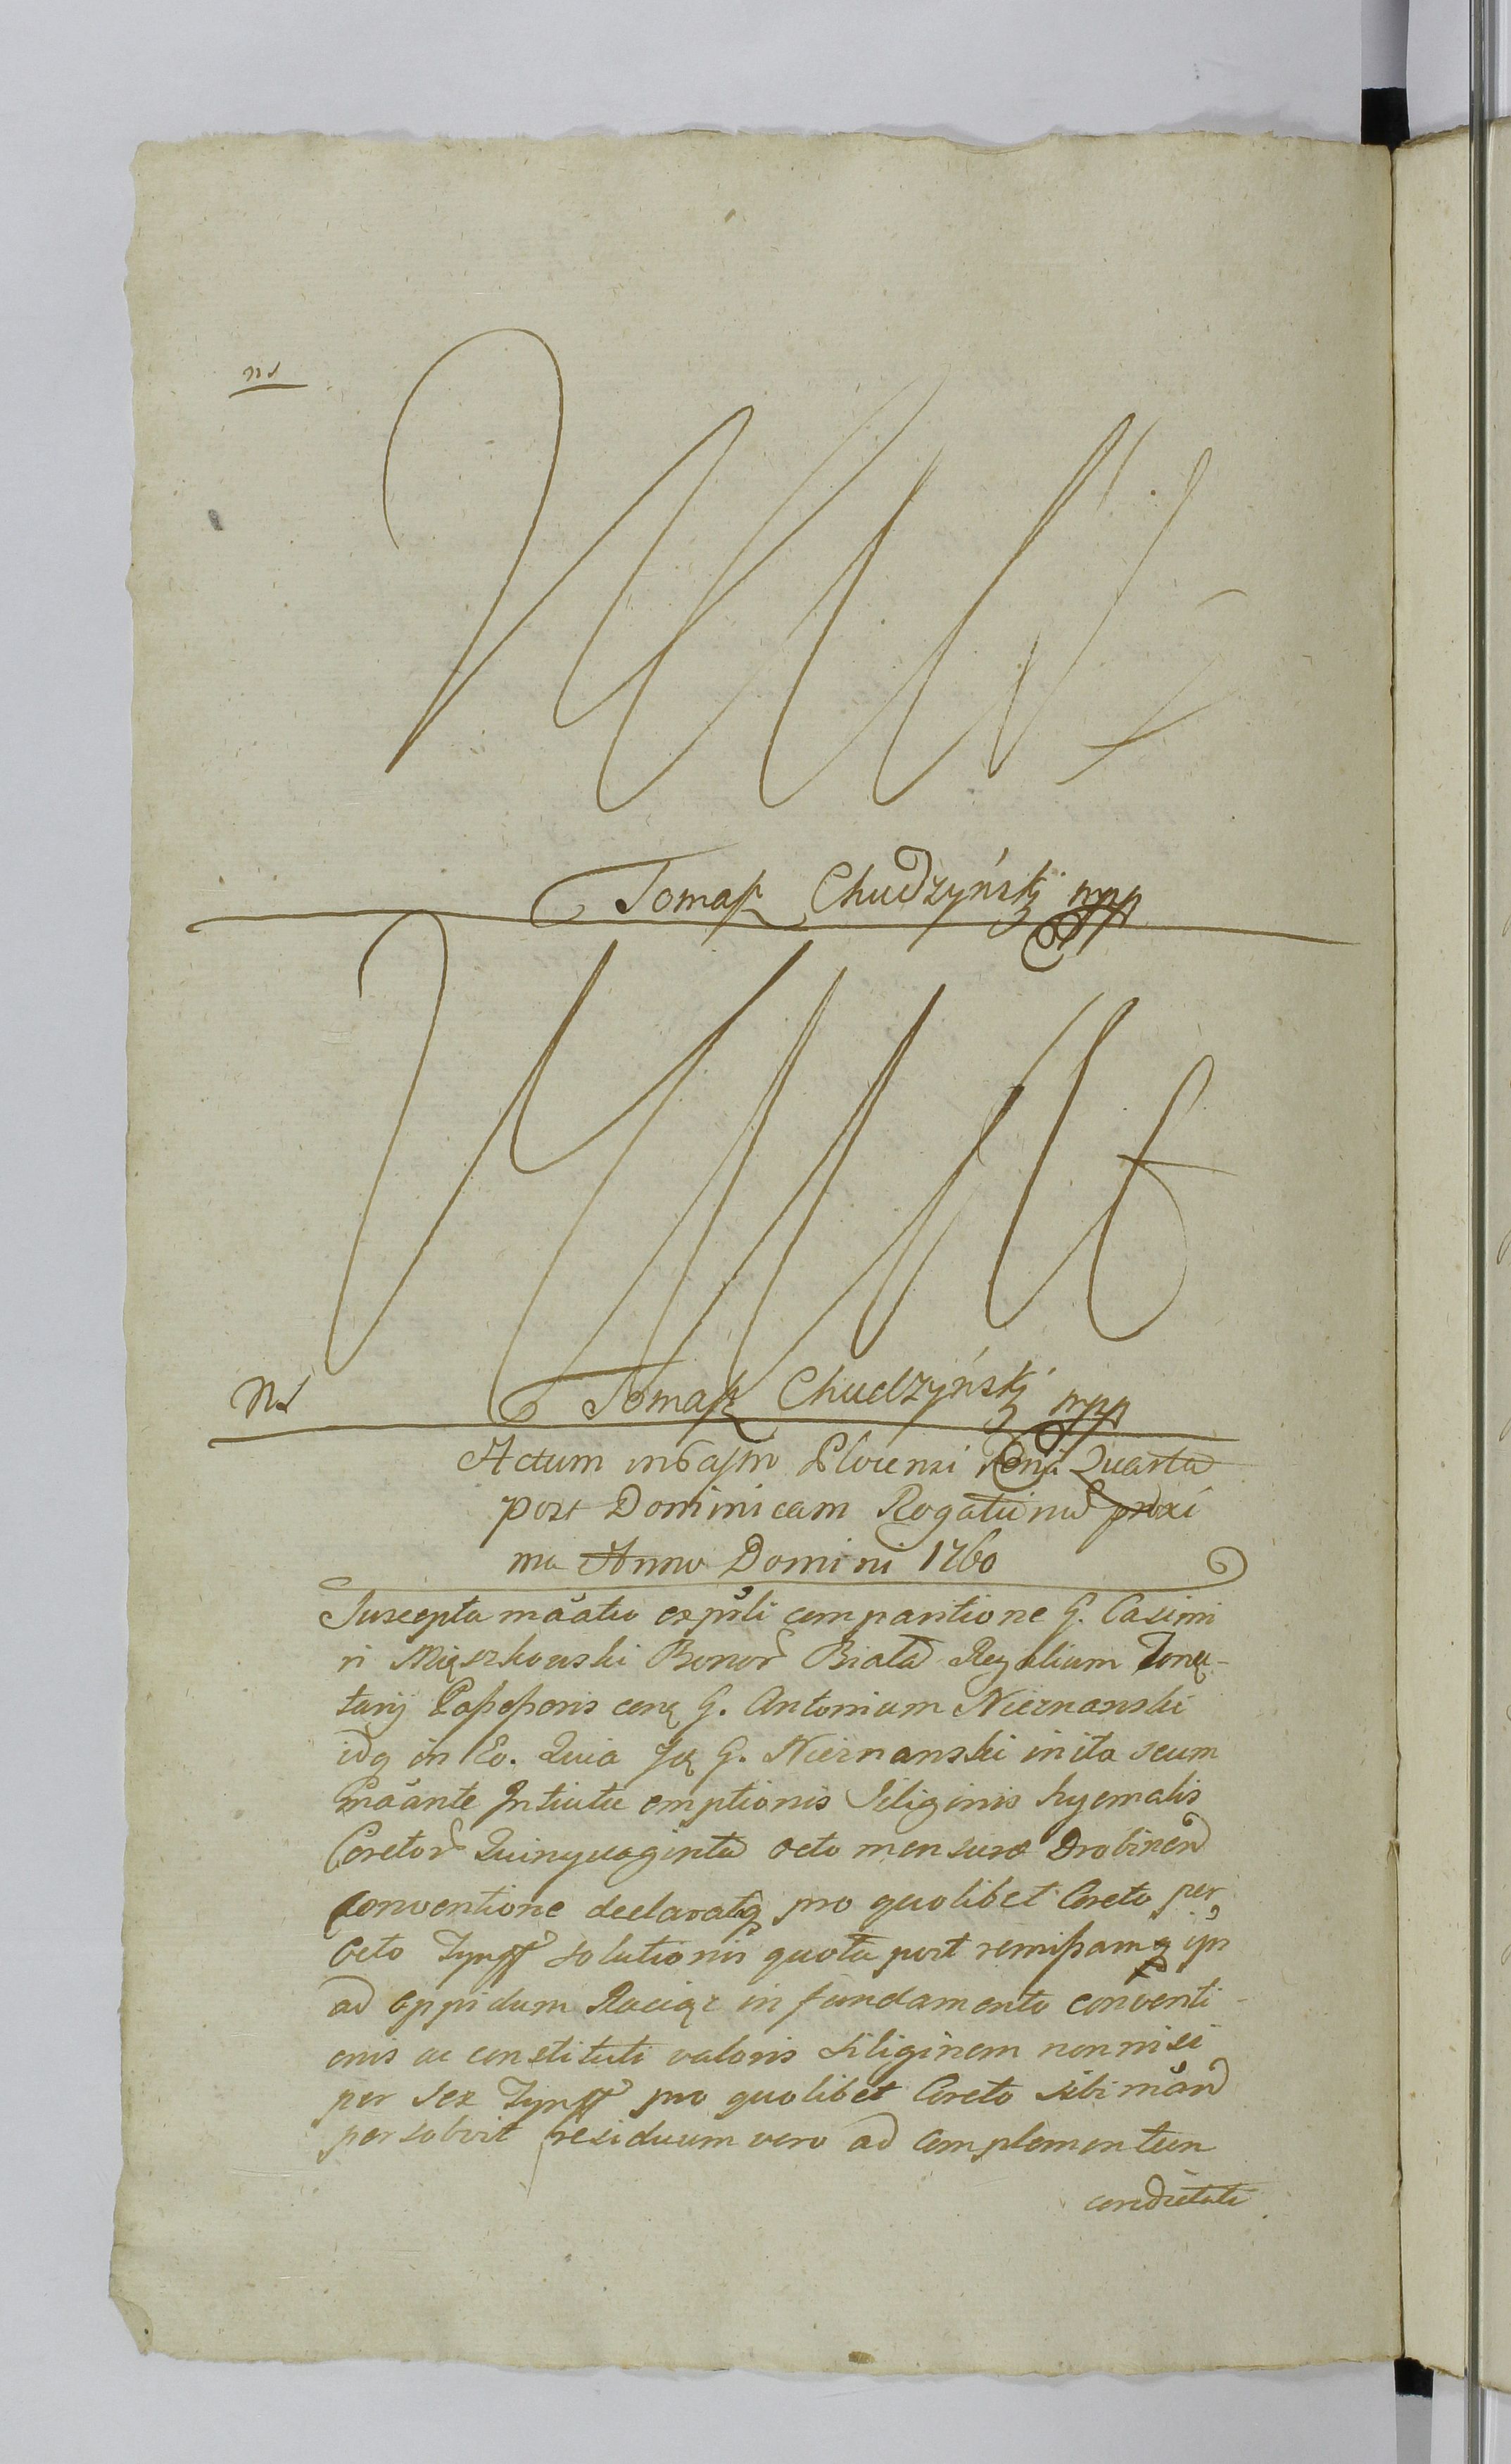 ns
Tomasz Chudzyński mpp
NS
Tomasz Chudzyński mpp
Actum in Castro Plocensi Feria Quarta
post Dominicam Rogationum proxi
ma Anno Domini 1760
Suscepta máatio expsli comparitione G. Casimi
ri Mięszkowski Bonor Biała Regalium Tenu-
tarij Possessoris cenę G. Antonium Niernanski
idq in Eo. Quia Ją G. Niernanski inita secum
Máante Intuitu emptionis Siliginis hyemalis
Coretor Quinquaginta octo mensura Drobinen
Conventione declaratq pro quolibet Coreto per
Octo Tynff solutionis quota post remissamq ipi
ad oppidum Raciąż in fundamento conventi-
onis ac constituti valoris siliginem non nisi
per Sex Tynff pro quolibet Coreto sibi mán
persolvit residuum vero ad complementum
condictati